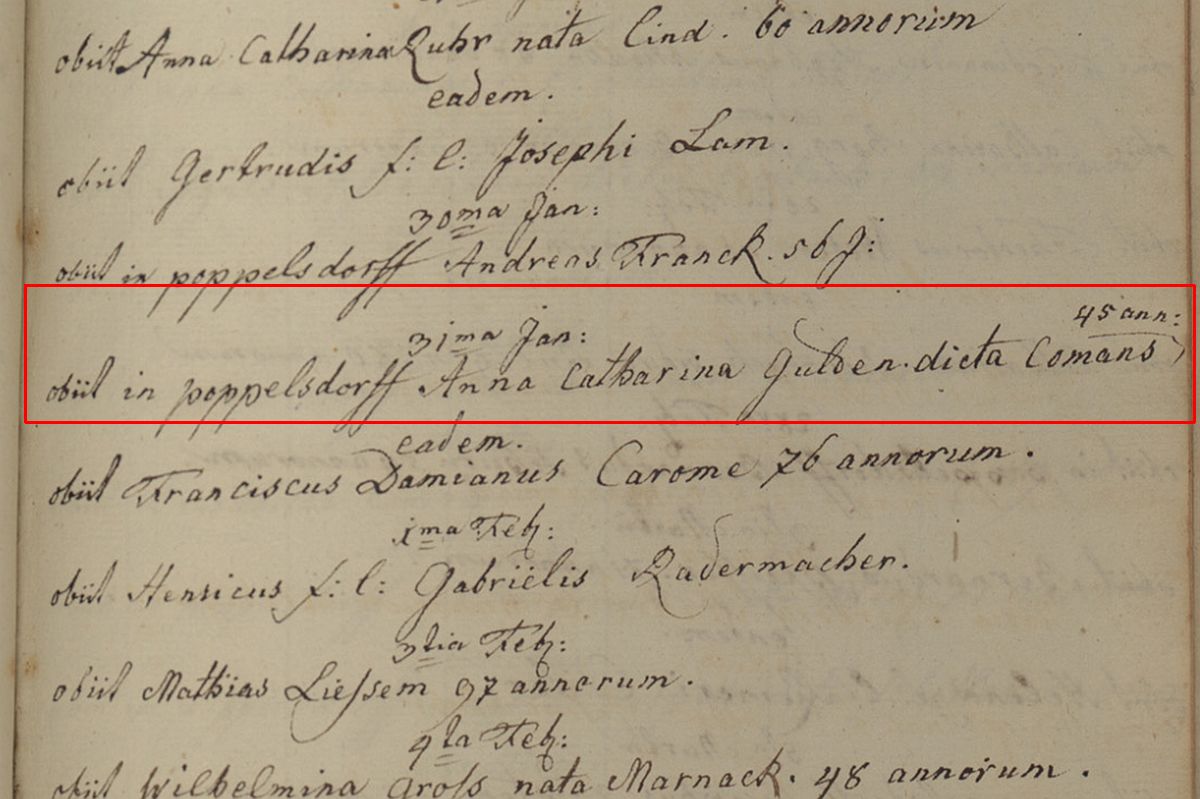 obiit Anna Catharina Ruhr nata Cind. 60 annorum
eadem.
obiit Gertrudis f: l: Josephi Lam.
30ma Jan:
obiit in poppelsdorff Andreas Franck. 56 J:
31ma Jan:
45 ann:
obiit in poppelsdorff Anna Catharina Gulden. dicta Comans
eadem.
obiit Franciscus Damianus Carome 76 annorum.
1ma Feb:
obiit Henricus f: l: Gabriëlis Radermacher.
3tia Feb:
obiit Mathias Liessem 97 annorum.
4ta Feb:
obiit Wilhelmina Gross nata Marnack. 48 annorum.